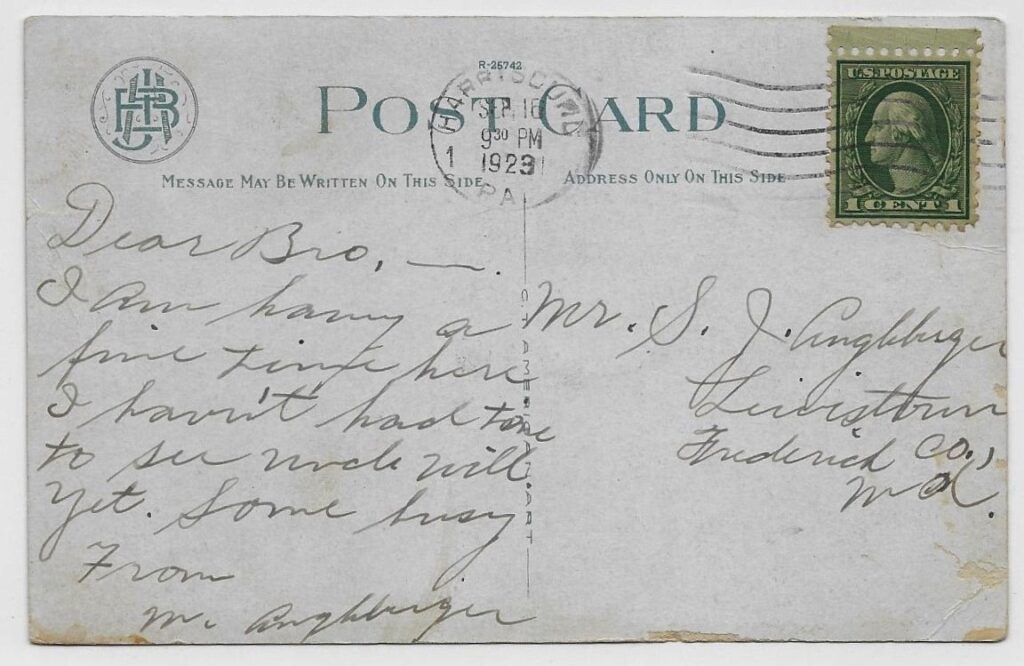 R-25742
POST CARD
HARRISBURG
SEP 16
9 30 PM
1923
1
PA
U.S. POSTAGE
1 CENT 1
MESSAGE MAY BE WRITTEN ON THIS SIDE
ADDRESS ONLY ON THIS SIDE
Dear Bro, —.
I am having a
fine time here
I havin't had time
to see uncle will
yet. Some busy
From
Angleberger
C.T. AMERICAN ART
Mr. S. J. Angleberger
Lewistown
Frederick Co.,
Md.